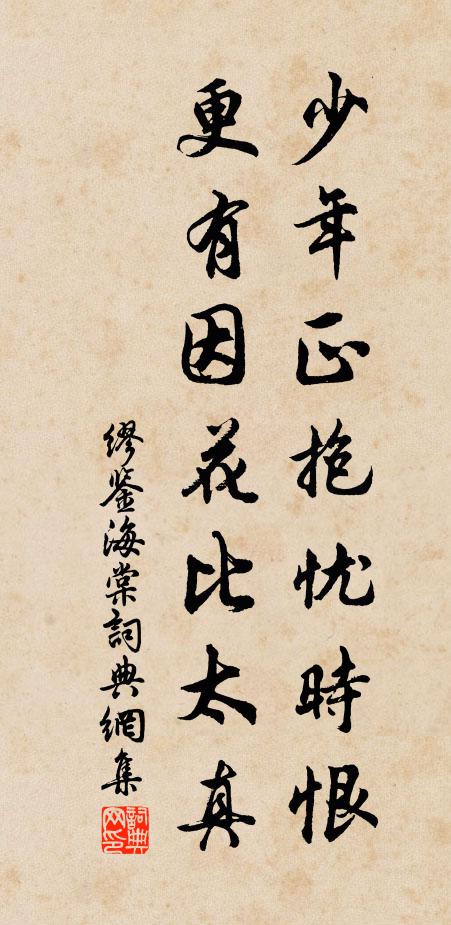 少年正抱忧時恨
更有因花比太真
繆鉴海棠詞典網集
詞典网印